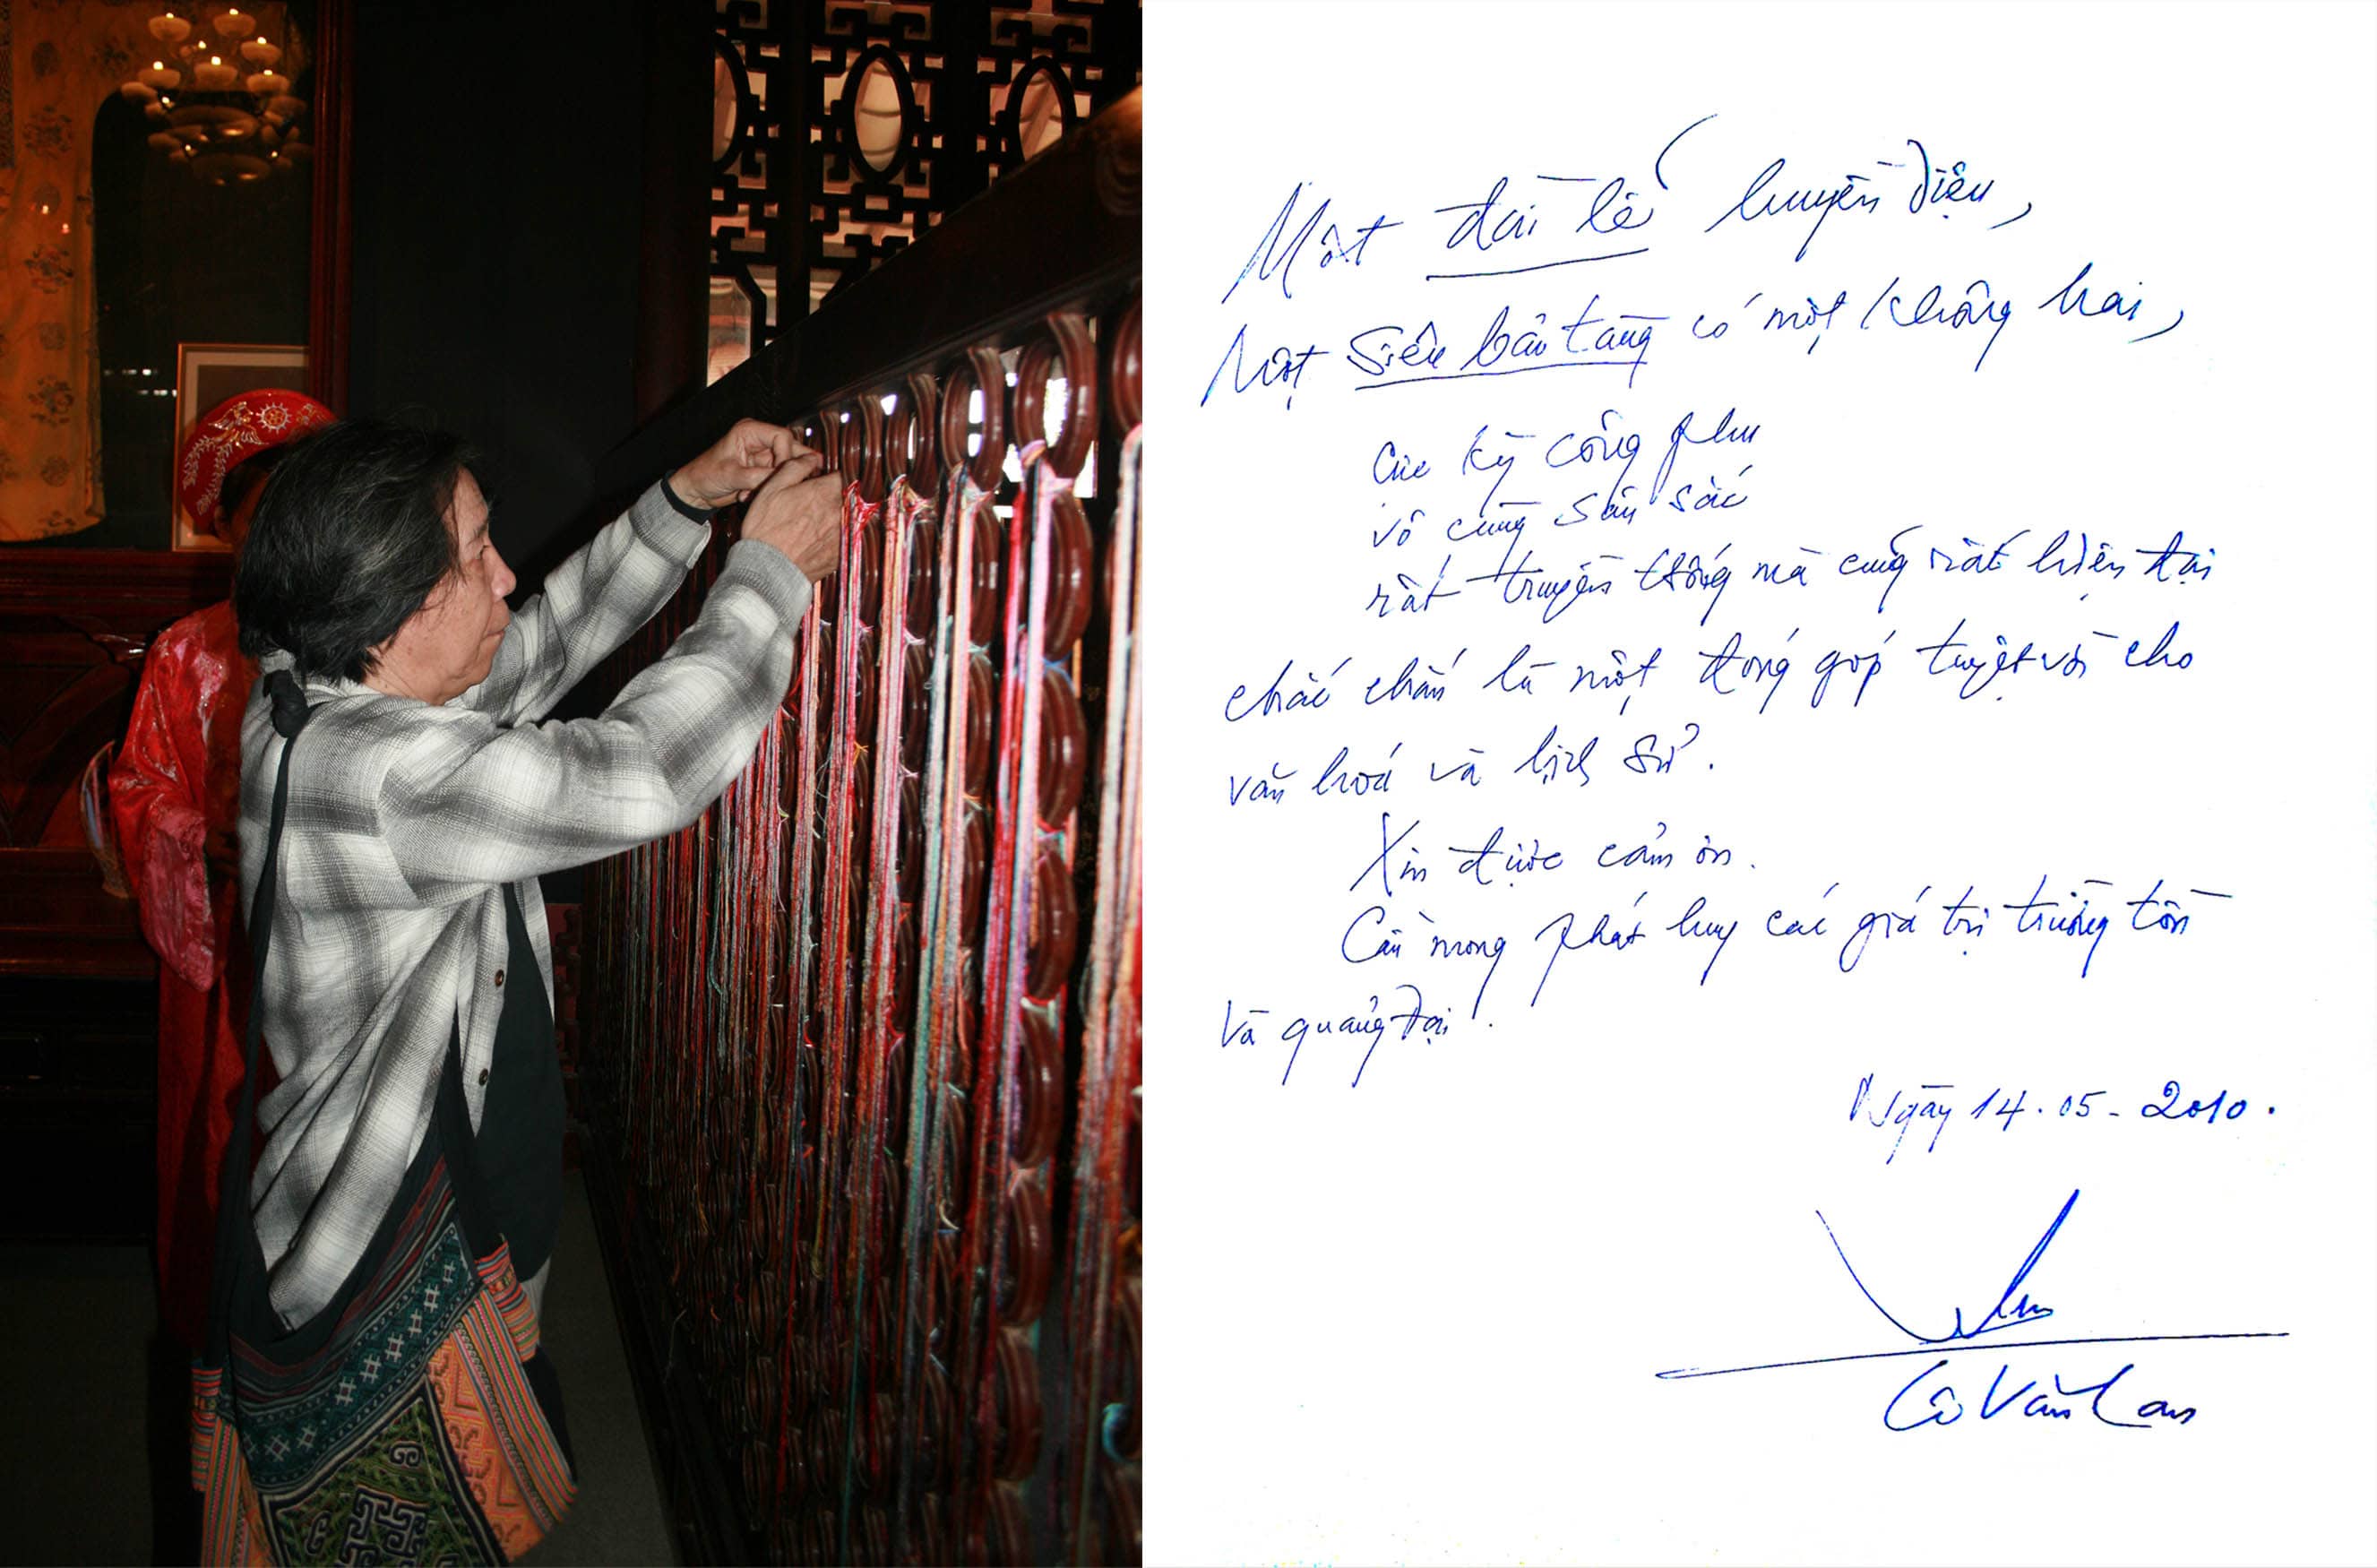 Một đại lễ huyền diệu,
Một siêu bảo tàng có một không hai,
Cực kỳ công phu
vô cùng sâu sắc
rất truyền thống mà cũng rất hiện đại
chắc chắn là một đóng góp tuyệt vời cho
văn hoá và lịch sử.
Xin được cảm ơn.
Cầu mong phát huy các giá trị trường tồn
và quảng đại.
Ngày 14.05-2010.
Lê Văn Lan